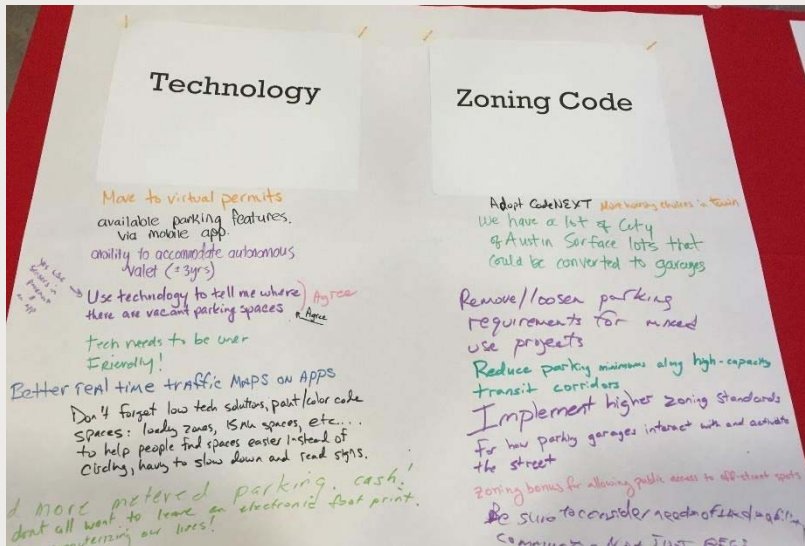 Technology
Move to virtual permits
available parking features.
via mobile app.
ability to accomodate autonomous
valet (±3yrs)
Use technology to tell me where
there are vacant parking spaces
Agree
Agree
tech needs to be user
Friendly!
Better real time traffic maps on apps
Don't forget low tech solutions, paint/color code
spaces: loading zones, 15 min spaces, etc...
to help people find spaces easier instead of
circling, having to slow down and read signs.
more metered parking. cash!
dont all want to leave an electronic foot print.
our lives!
Zoning Code
Adopt CodeNEXT More housing choices in town
We have a lot of City
of Austin Surface lots that
could be converted to garages
Remove/loosen parking
requirements for mixed
use projects
Reduce parking minimums along high-capacity
transit corridors
Implement higher zoning standards
for how parking garages interact with and activate
the street
Zoning bonus for allowing public access to off-street spots
Be sure to consider needs of
Not JUST